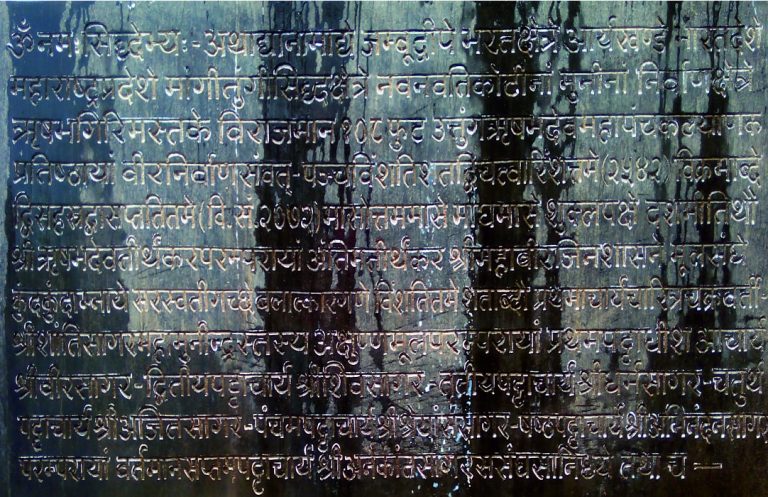 ॐ नमः सिद्धेभ्यः - अथाद्यानामाद्ये जम्बूद्वीपे भरतक्षेत्रे आर्यखण्डे भारतदेशे
महाराष्ट्रप्रदेशे मांगीतुंगीसिद्धक्षेत्रे नवनवतिकोटीनां मुनीनां निर्वाणक्षेत्रे
ऋषभगिरिमस्तके विराजमान १०८ फुट उत्तुंगऋषभदेवमहापंचकल्याणक
प्रतिष्ठायां वीरनिर्वाणसंवत्-पञ्चविंशतिशतद्वियत्वारिंशत्तमे (२५४२) विक्रमाब्दे
द्विसहस्रद्वासप्ततितमे (वि.सं.२०७२) मासोत्तममासे माघमासे शुक्लपक्षे दशमीतिथौ
श्रीऋषभदेवतीर्थंकरपरम्परायां अंतिमतीर्थंकर श्रीमहावीरजिनशासने मूलसंघे
कुंदकुंदाम्नाये सरस्वतीगच्छे बलात्कारगणे विंशतितमे शताब्दौ प्रथमाचार्यचारित्रचक्रवर्ती-
श्रीशांतिसागरमहामुनीन्द्रस्तस्य अक्षुण्णमूलपरम्परायां प्रथमपट्टाधीश आचार्य
श्रीवीरसागर-द्वितीयपट्टाचार्य श्रीशिवसागर-तृतीयपट्टाचार्य श्रीधर्मसागर-चतुर्थ
पट्टाचार्य श्रीअजितसागर-पंचमपट्टाचार्य श्रीश्रेयांससागर-षष्ठपट्टाचार्य श्रीअभिनंदनसागर
परम्परायां वर्तमानसप्तमपट्टाचार्य श्रीअनेकांतसागर सानिध्ये तथा च -